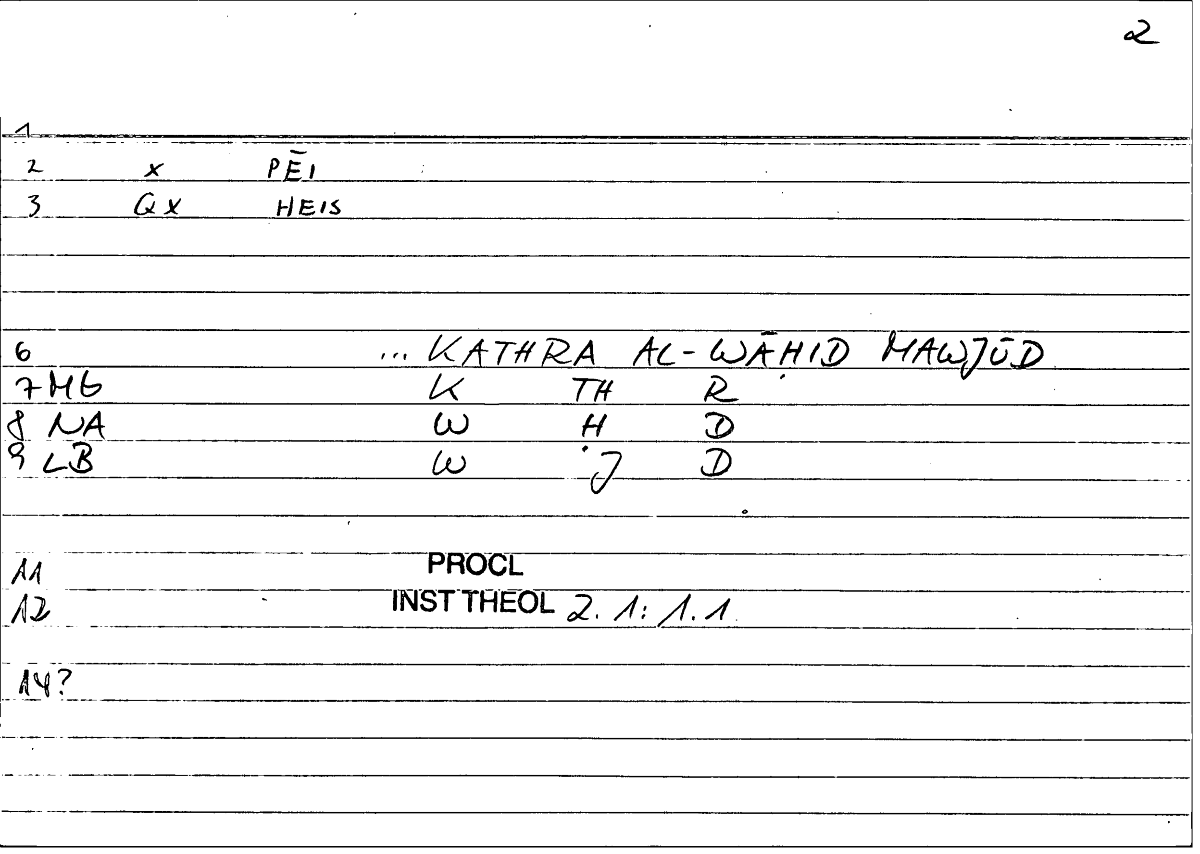 2
1
2 x PĒI
3 Qx HEIS
6 ... KATHRA AL-WĀḤID MAWJŪD
7 MG K TH R
8 NA W Ḥ D
9 LB W J D
11 PROCL
12 INST THEOL 2. 1: 1. 1
14?